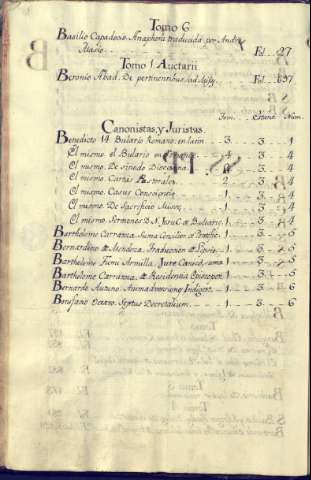 Tomo 6
Basilio Capadocio Anaphora traducida por Andres
Masio Fol. 27
Tomo 1 Auctarii
Bernonio Abad. De pertinentibus ad Missã Fol. 697
Tom. Estante. Num.
Canonistas, y Juristas.
Benedicto 14 Bulario Romano, en latin 3 3 1
El mismo el Bulario en 4 4
El mismo De Sinodo Diocesana 4
El mismo Cartas Pastorales 2 3 4
El mismo Casus Conscientie 1 3 4
El mismo De Sacrificio Missae 1 3 4
El mismo Sermones D. N. Jesu C. 1 3 4
Bartholome Carranza Suma Concilior. et Pontific. 1 3 5
Bernardino de Mendoza 1 3 5
Bartholome Fumi Armilla. Jure Canico, suma 1 3 5
Bartholome Carranza de Residencia Episcopor. 1 3 5
Bernardo 1 3 6
Bonifacio Octavo Septus Decretalium 1 3 6